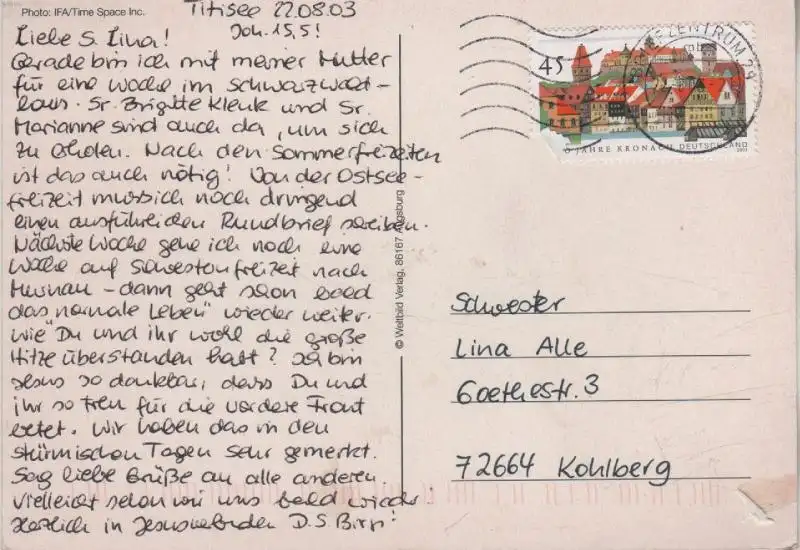 Photo: IFA/Time Space Inc.
Titisee 22.08.03
Joh. 15,5!
Liebe S. Lina!
Gerade bin ich mit meiner Mutter
für eine Woche im Schwarzwald-
haus. Sr. Brigitte Klenk und Sr.
Marianne sind auch da, um sich
zu erholen. Nach den Sommerfreizeiten
ist das auch nötig! Von der Ostsee-
freizeit muss ich noch dringend
einen ausführlichen Rundbrief schreiben.
Nächste Woche gehe ich noch eine
Woche auf Schwesternfreizeit nach
- dann geht schon bald
das "normale Leben" wieder weiter.
Wie Du und ihr wohl die große
Hitze überstanden habt? Ich bin
Jesus so dankbar, dass Du und
ihr so treu für die vordere Front
betet. Wir haben das in den
stürmischen Tagen sehr gemerkt.
Sag liebe Grüße an alle anderen
vielleicht sehen wir uns bald wieder
Herzlich in Jesus verbunden D. S.
© Weltbild Verlag, 86167 Augsburg
45
BRIEFZENTRUM
JAHRE KRONACH DEUTSCHLAND
2003
Schwester
Lina Alle
Goethestr. 3
72664 Kohlberg